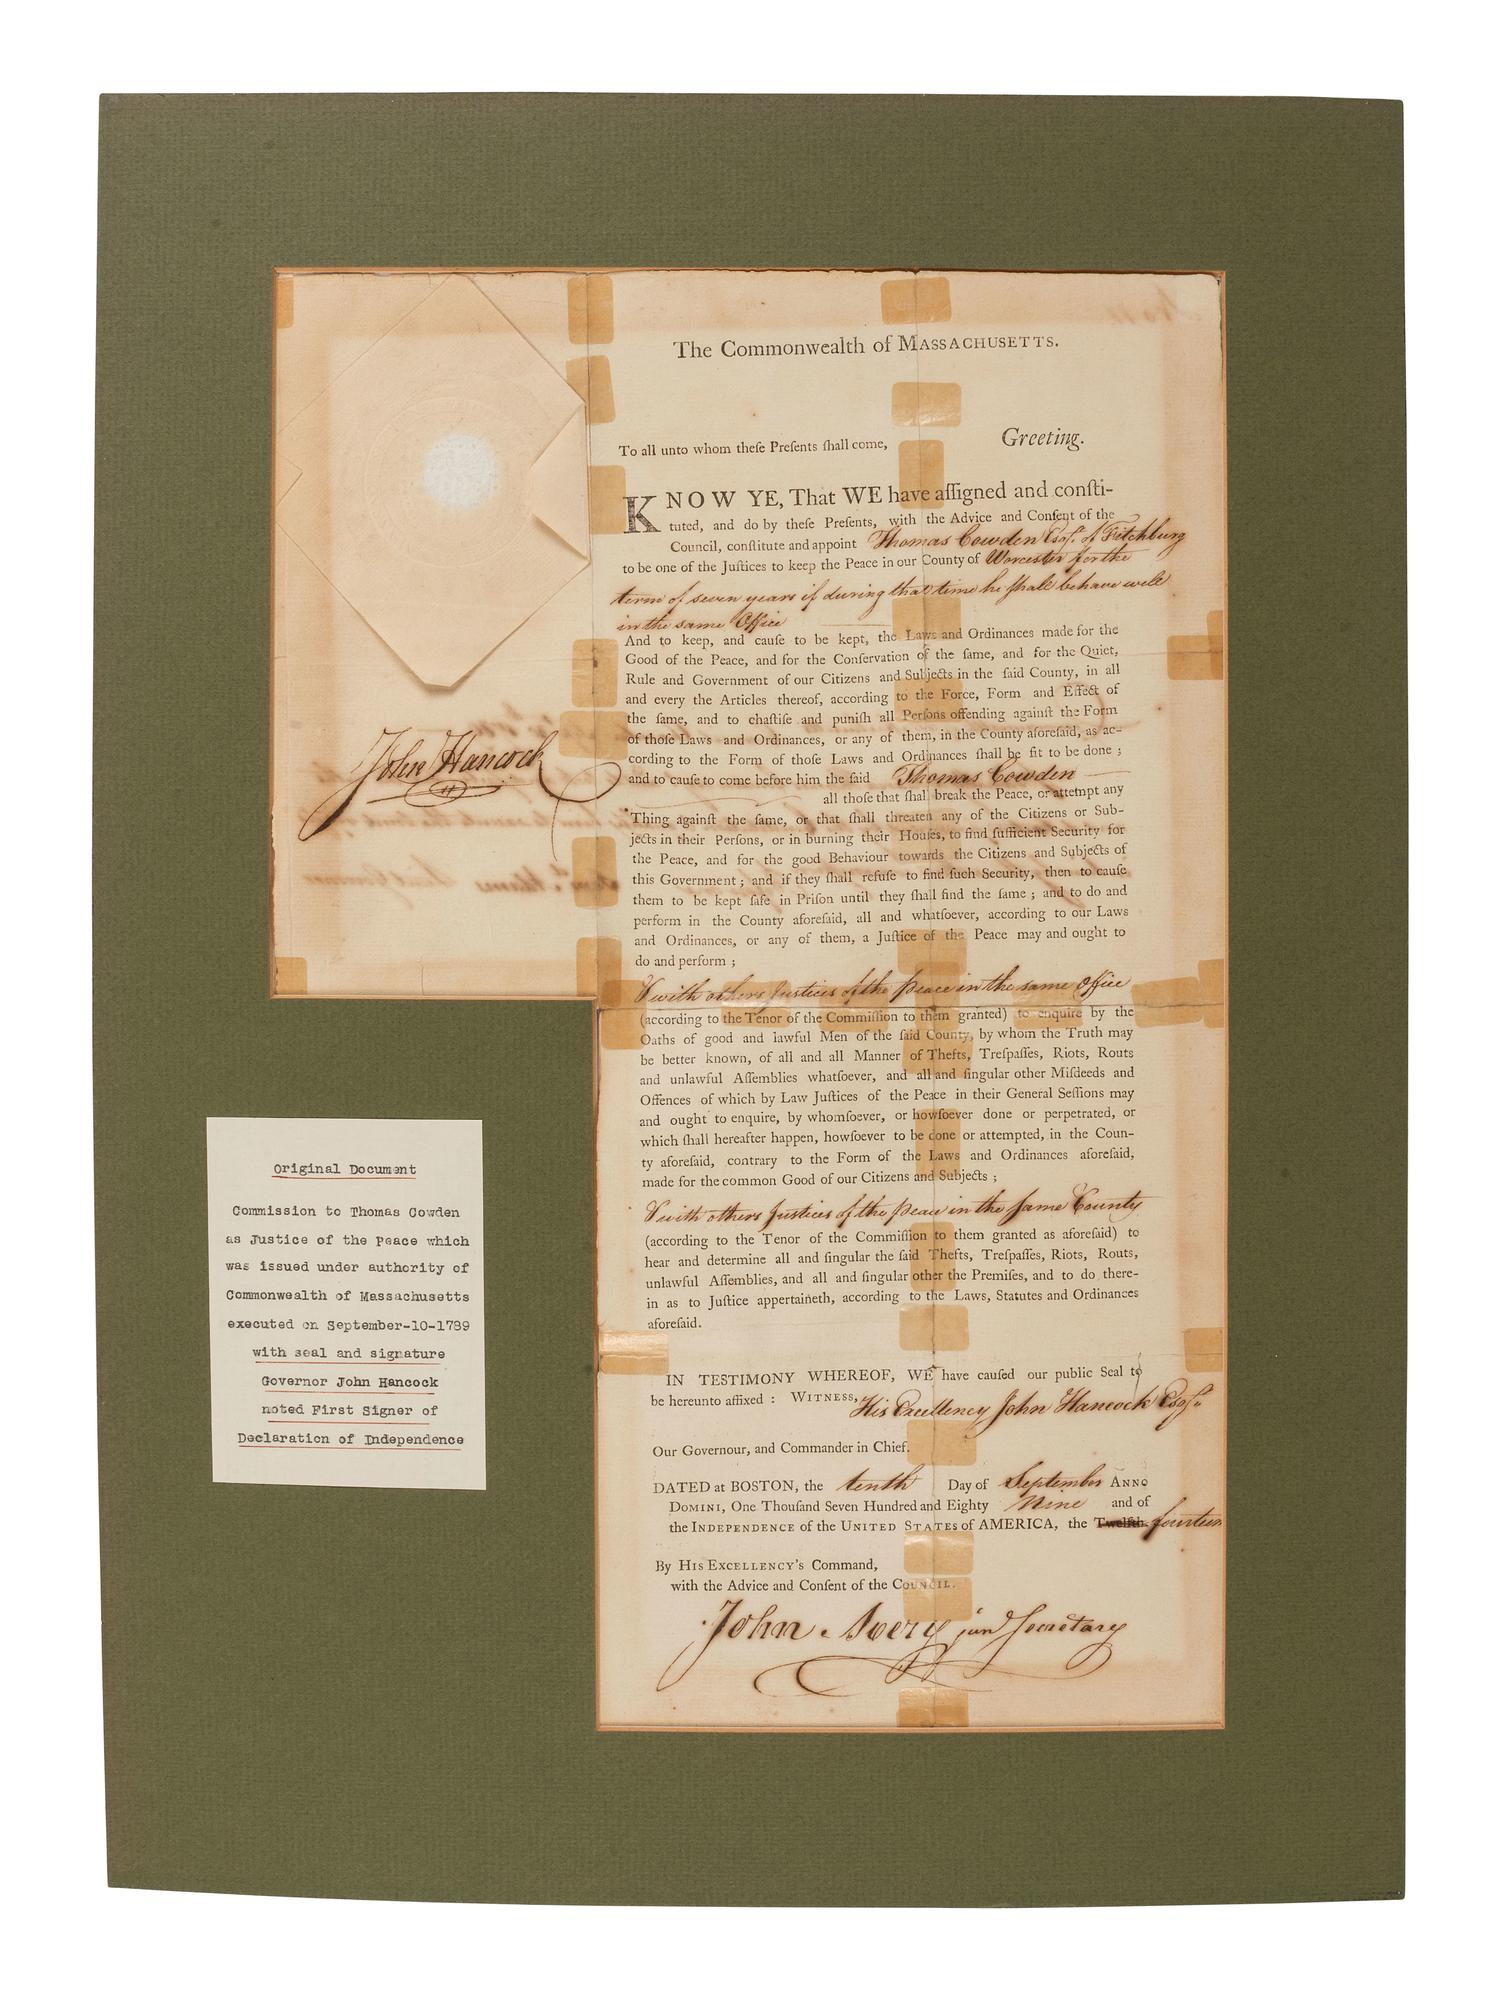 The Commonwealth of MASSACHUSETTS.
To all unto whom theſe Preſents ſhall come, Greeting.
KNOW YE, That WE have aſſigned and conſti-
tuted, and do by theſe Preſents, with the Advice and Conſent of the
Council, conſtitute and appoint Thomas Cowden Esqr. of Fitchburg
to be one of the Juſtices to keep the Peace in our County of Worcester for the
term of seven years if during that time he ſhall behave well
in the same Office
And to keep, and cauſe to be kept, the Laws and Ordinances made for the
Good of the Peace, and for the Conſervation of the ſame, and for the Quiet,
Rule and Government of our Citizens and Subjects in the ſaid County, in all
and every the Articles thereof, according to the Force, Form and Effect of
the ſame, and to chaſtiſe and puniſh all Perſons offending againſt the Form
of thoſe Laws and Ordinances, or any of them, in the County aforeſaid, as ac-
cording to the Form of thoſe Laws and Ordinances ſhall be fit to be done ;
and to cauſe to come before him the ſaid Thomas Cowden
all thoſe that ſhal break the Peace, or attempt any
Thing againſt the ſame, or that ſhall threaten any of the Citizens or Sub-
jects in their Perſons, or in burning their Houſes, to find ſufficient Security for
the Peace, and for the good Behaviour towards the Citizens and Subjects of
this Government ; and if they ſhall refuſe to find ſuch Security, then to cauſe
them to be kept ſafe in Priſon until they ſhall find the ſame ; and to do and
perform in the County aforeſaid, all and whatſoever, according to our Laws
and Ordinances, or any of them, a Juſtice of the Peace may and ought to
do and perform ;
& with others Justices of the peace in the same Office
(according to the Tenor of the Commiſſion to them granted) to enquire by the
Oaths of good and lawful Men of the ſaid County, by whom the Truth may
be better known, of all and all Manner of Thefts, Treſpaſſes, Riots, Routs
and unlawful Aſſemblies whatſoever, and all and ſingular other Miſdeeds and
Offences of which by Law Juſtices of the Peace in their General Seſſions may
and ought to enquire, by whomſoever, or howſoever done or perpetrated, or
which ſhall hereafter happen, howſoever to be done or attempted, in the Coun-
ty aforeſaid, contrary to the Form of the Laws and Ordinances aforeſaid,
made for the common Good of our Citizens and Subjects ;
& with others Justices of the peace in the ſame County
(according to the Tenor of the Commiſſion to them granted as aforeſaid) to
hear and determine all and ſingular the ſaid Thefts, Treſpaſſes, Riots, Routs,
unlawful Aſſemblies, and all and ſingular other the Premiſes, and to do there-
in as to Juſtice appertaineth, according to the Laws, Statutes and Ordinances
aforeſaid.
IN TESTIMONY WHEREOF, WE have cauſed our public Seal to
be hereunto affixed : WITNESS, His Excellency John Hancock Esqr.
Our Governour, and Commander in Chief.
DATED at BOSTON, the tenth Day of September ANNO
DOMINI, One Thouſand Seven Hundred and Eighty Nine and of
the INDEPENDENCE of the UNITED STATES of AMERICA, the Twelfth fourteen
By HIS EXCELLENCY'S Command,
with the Advice and Conſent of the COUNCIL.
John Avery jun Secretary
John Hancock
Original Document
Commission to Thomas Cowden
as Justice of the Peace which
was issued under authority of
Commonwealth of Massachusetts
executed on September-10-1789
with seal and signature
Governor John Hancock
noted First Signer of
Declaration of Independence